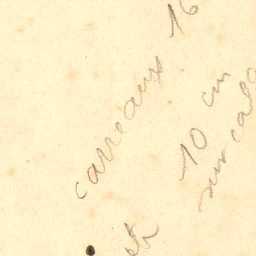 carreaux 16
10 cm
sur